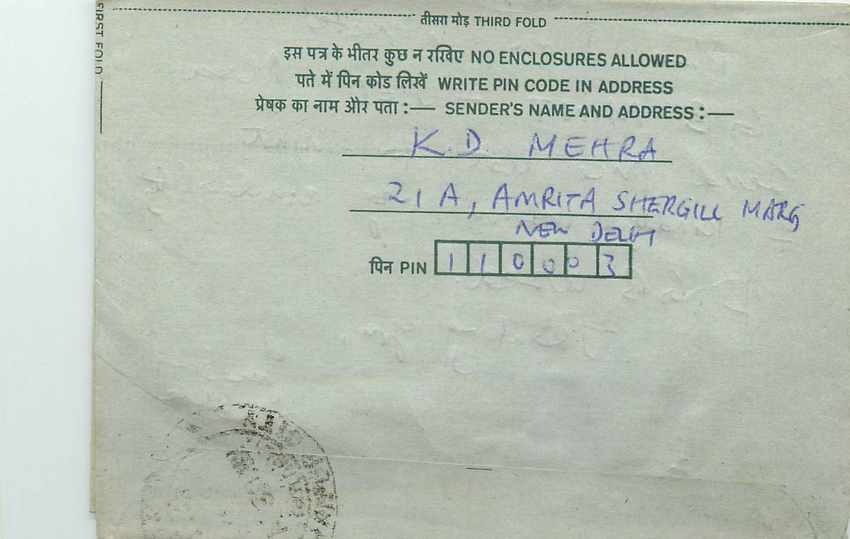 तीसरा मोड़ THIRD FOLD
FIRST FOLD
इस पत्र के भीतर कुछ न रखिए NO ENCLOSURES ALLOWED
पते में पिन कोड लिखें WRITE PIN CODE IN ADDRESS
प्रेषक का नाम और पता :— SENDER'S NAME AND ADDRESS :—
K. D. MEHRA
21 A, AMRITA SHERGILL MARG
NEW DELHI
पिन PIN 110003